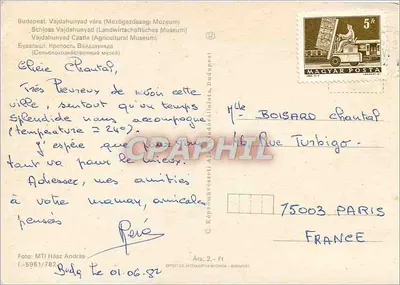 Budapest. Vajdahunyad vára (Mezőgazdasági Múzeum)
Schloss Vajdahunyad (Landwirtschaftliches Museum)
Vajdahunyad Castle (Agricultural Museum)
Будапешт. Крепость Вайдахуняд
(Сельскохозяйственный музей)
5 Ft
MAGYAR POSTA
Chère Chantal,
Très heureux de mon cette
ville, surtout qu'un temps
splendide nous accompagne
(température = 24°).
J'espère que pour vous
tout va pour le mieux.
Adresser, mes amitiés
à votre maman, amicales
pensés
René
Bada le 01.06.82
Mlle BOISARD Chantal
46 Rue Turbigo
75003 PARIS
FRANCE
CPAPHIL
Foto: MTI Hász András
Ára: 2,- Ft